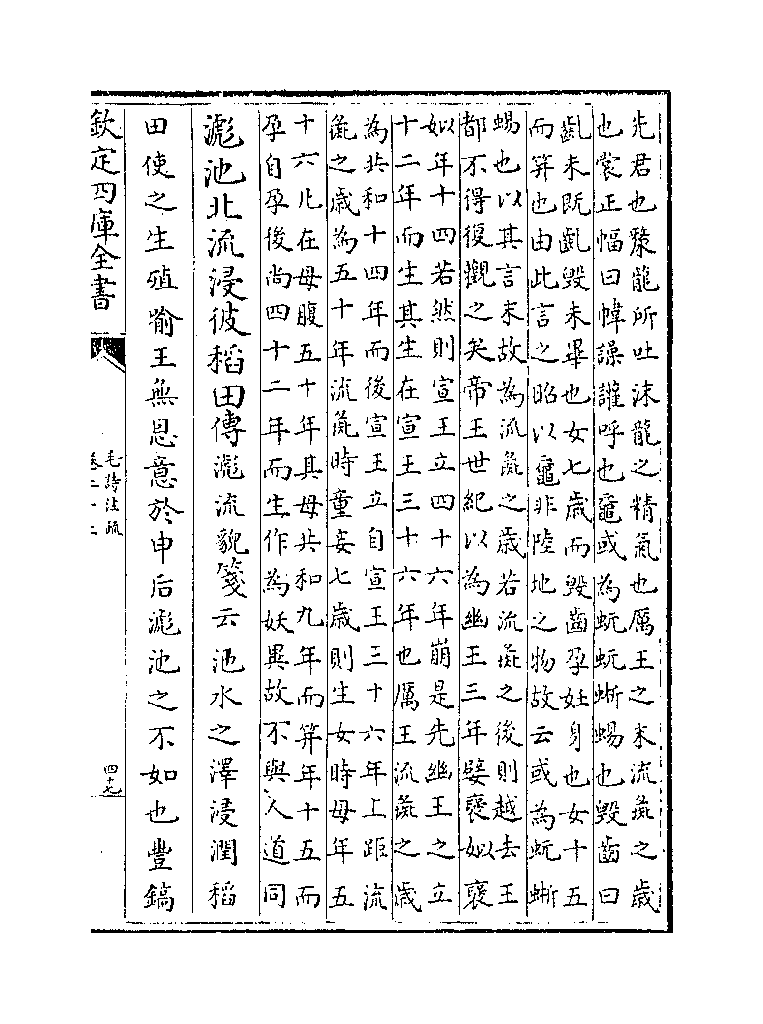 先君也漦龍所吐沫龍之精氣也厲王之末流彘之歲
也裳正幅曰幃譟讙呼也黿或為蚖蚖蜥蜴也毀齒曰
齓未既齓毀未畢也女七歲而毀齒孕妊身也女十五
而筓也由此言之昭以黿非陸地之物故云或為蚖蜥
蜴也以其言末故為流彘之歲若流彘之後則越去王
都不得復觀之矣帝王世紀以為幽王三年嬖褒姒褒
姒年十四若然則宣王立四十六年崩是先幽王之立
十二年而生其生在宣王三十六年也厲王流彘之歲
為共和十四年而後宣王立自宣王三十六年上距流
彘之歲為五十年流彘時童妾七歲則生女時母年五
十六凡在母腹五十年其母共和九年而筓年十五而
孕自孕後尚四十二年而生作為妖異故不與人道同
滮池北流浸彼稻田傳滮流貌箋云池水之澤浸潤稻
田使之生殖喻王無恩意於申后滮池之不如也豐鎬
欽定四庫全書
毛詩注疏